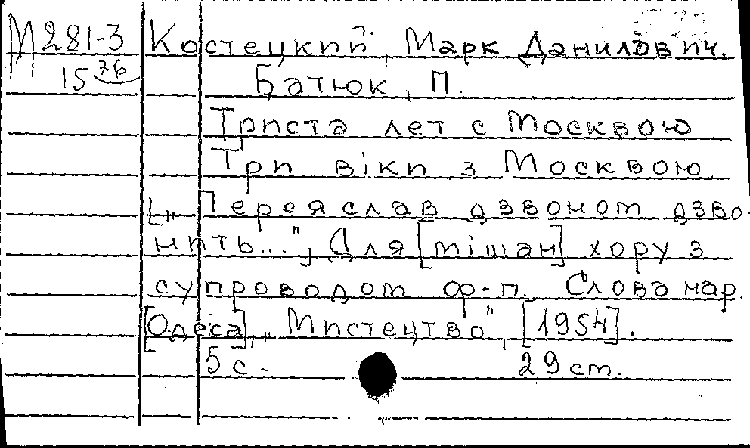 М281-3 Костецкий, Марк Данилович.
15 76 Батюк, П.
Триста лет с Москвою
Три віки з Москвою
[„Переяслав дзвоном дзво-
нить..."], Для [мішан] хору з
супроводом ф-п. Слова нар.
[Одеса], „Мистецтво", [1954].
5 с. 29 см.